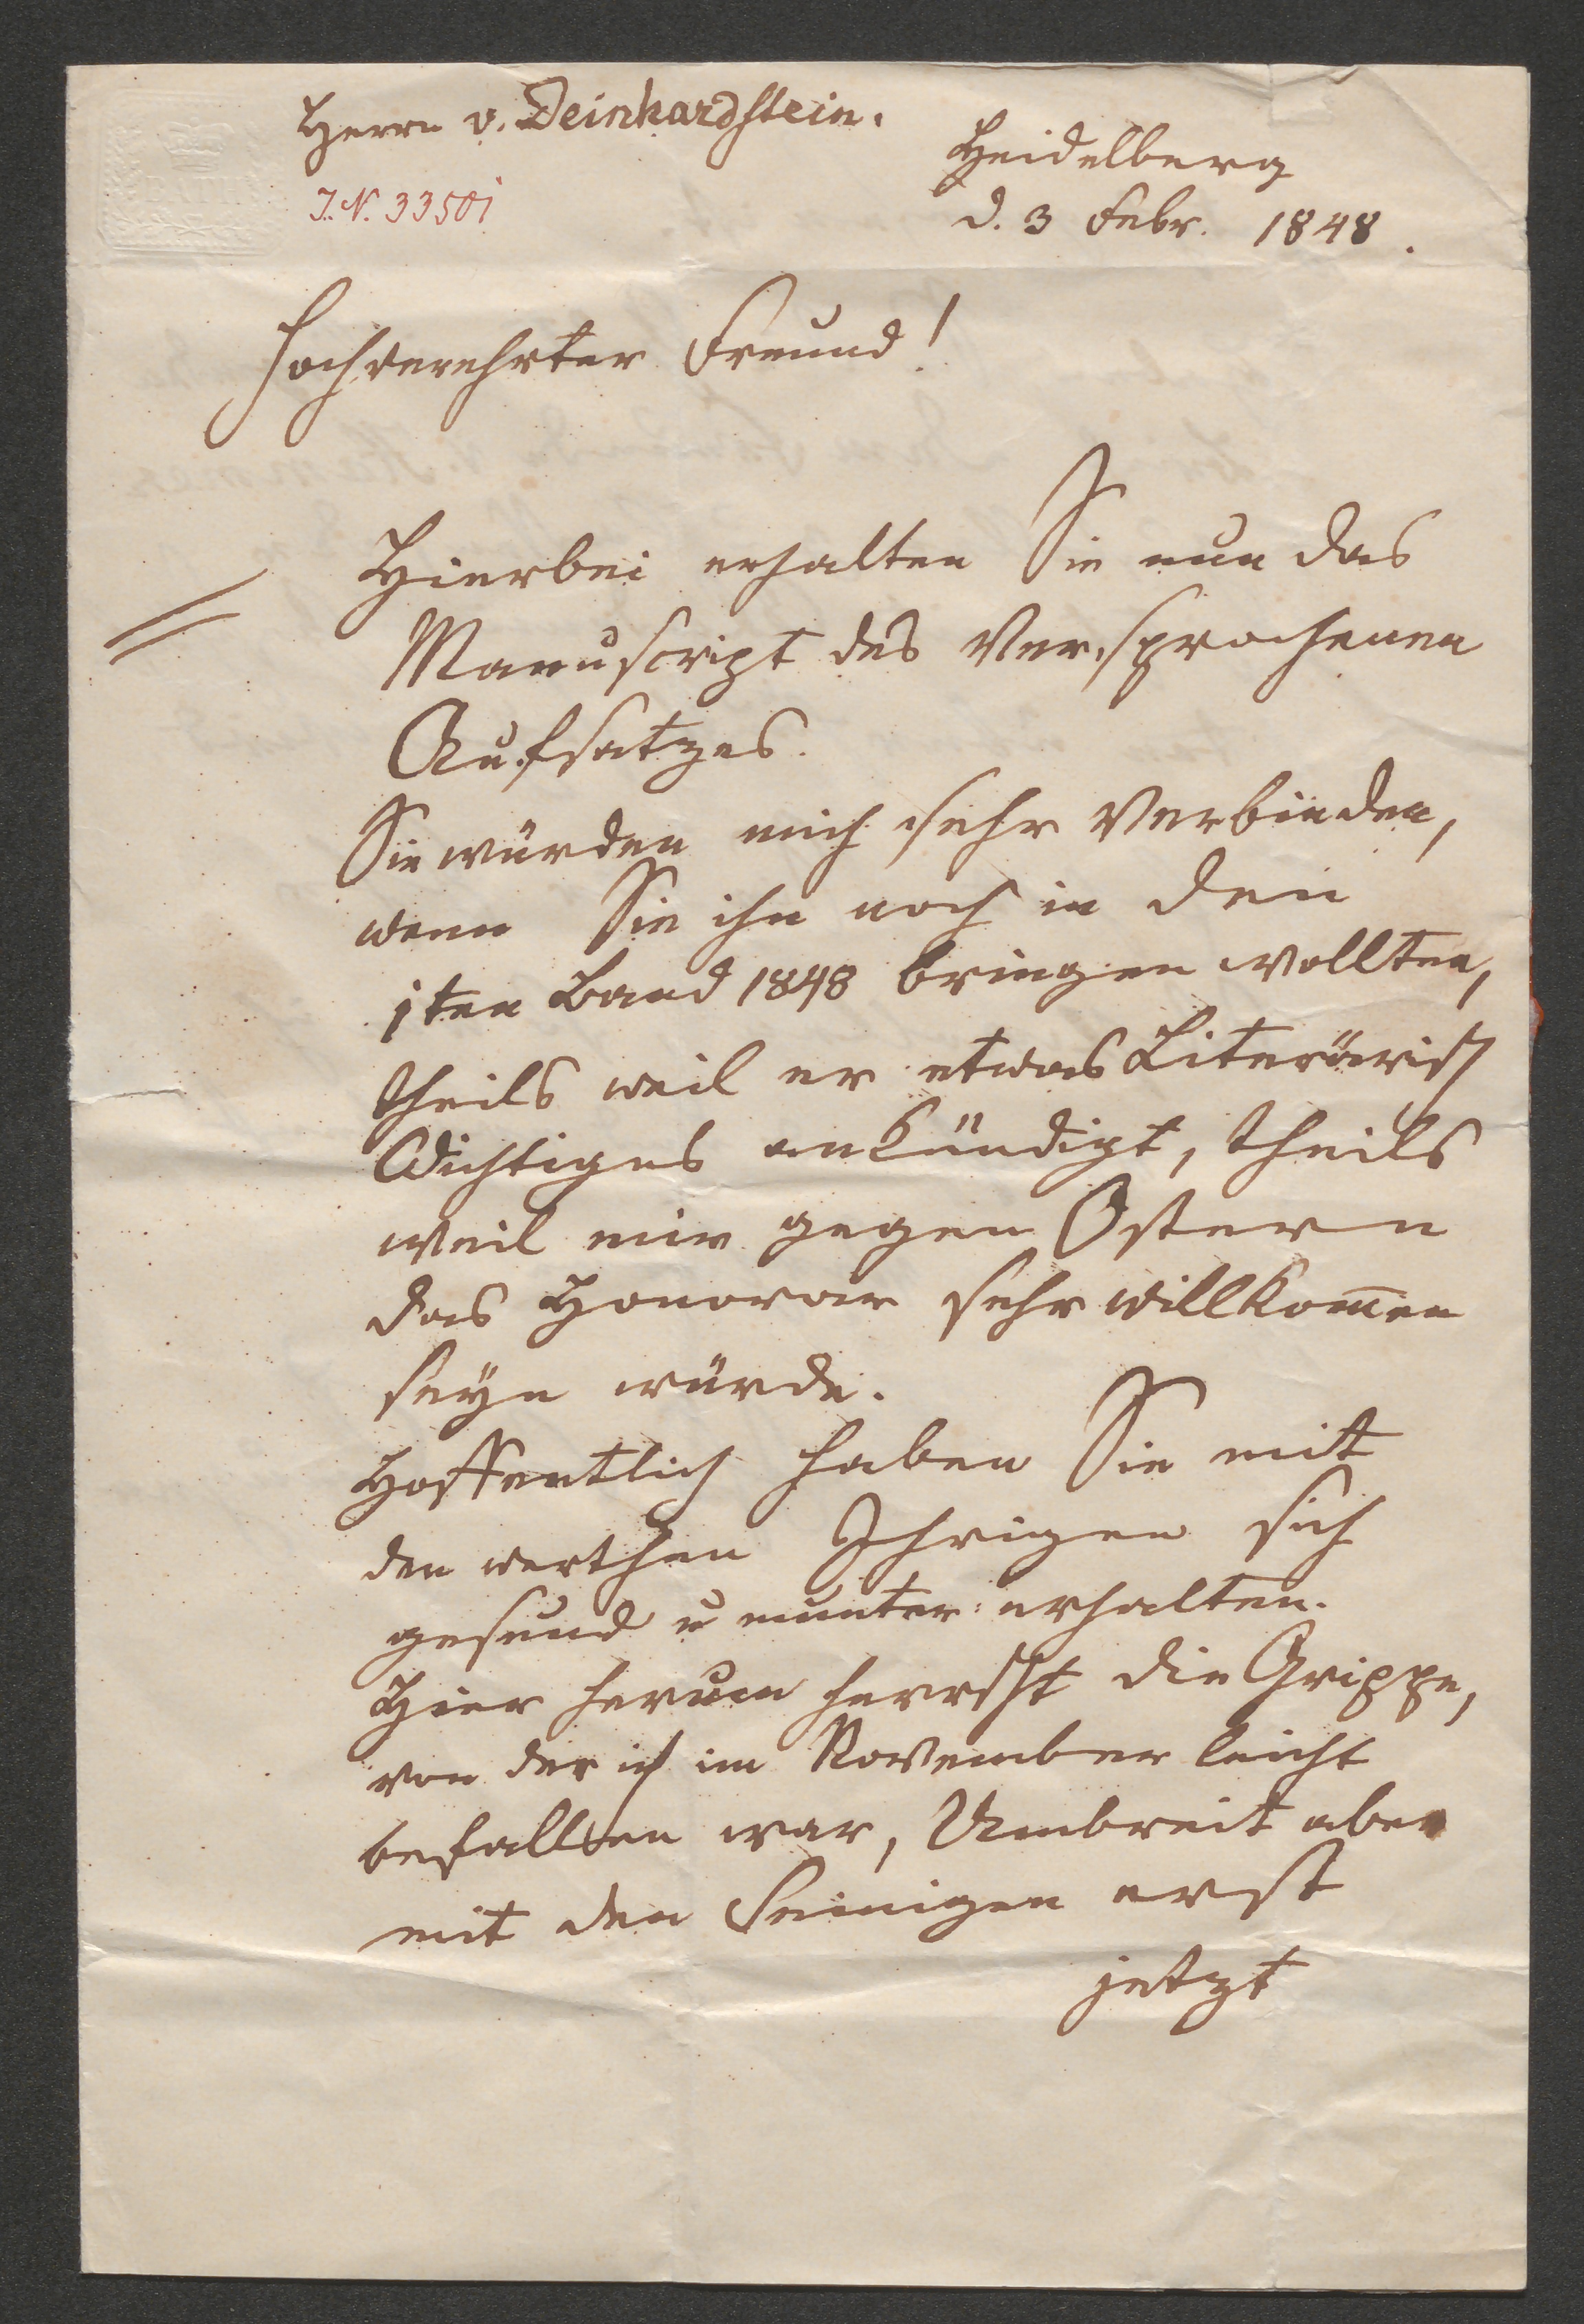 Herrn v. Deinhardstein.
Heidelberg
J.N. 33501
d. 3 Febr. 1848.
BATH
Hochverehrter Freund!
Hierbei erhalten Sie nun das
Manuscript des versprochenen
Aufsatzes.
Sie würden mich sehr verbinden,
wenn Sie ihn noch in den
1ten Band 1848 bringen wollten,
theils weil er etwas Literärisch
Wichtiges ankündigt, theils
weil mir gegen Ostern
das Honorar sehr willkom̅en
seyn würde.
Hoffentlich haben Sie mit
den werthen Ihrigen sich
gesund u munter erhalten.
Hier herum herrscht die Grippe,
von der ich im November leicht
befallen war, Umbreit aber
mit den Seinigen erst
jetzt